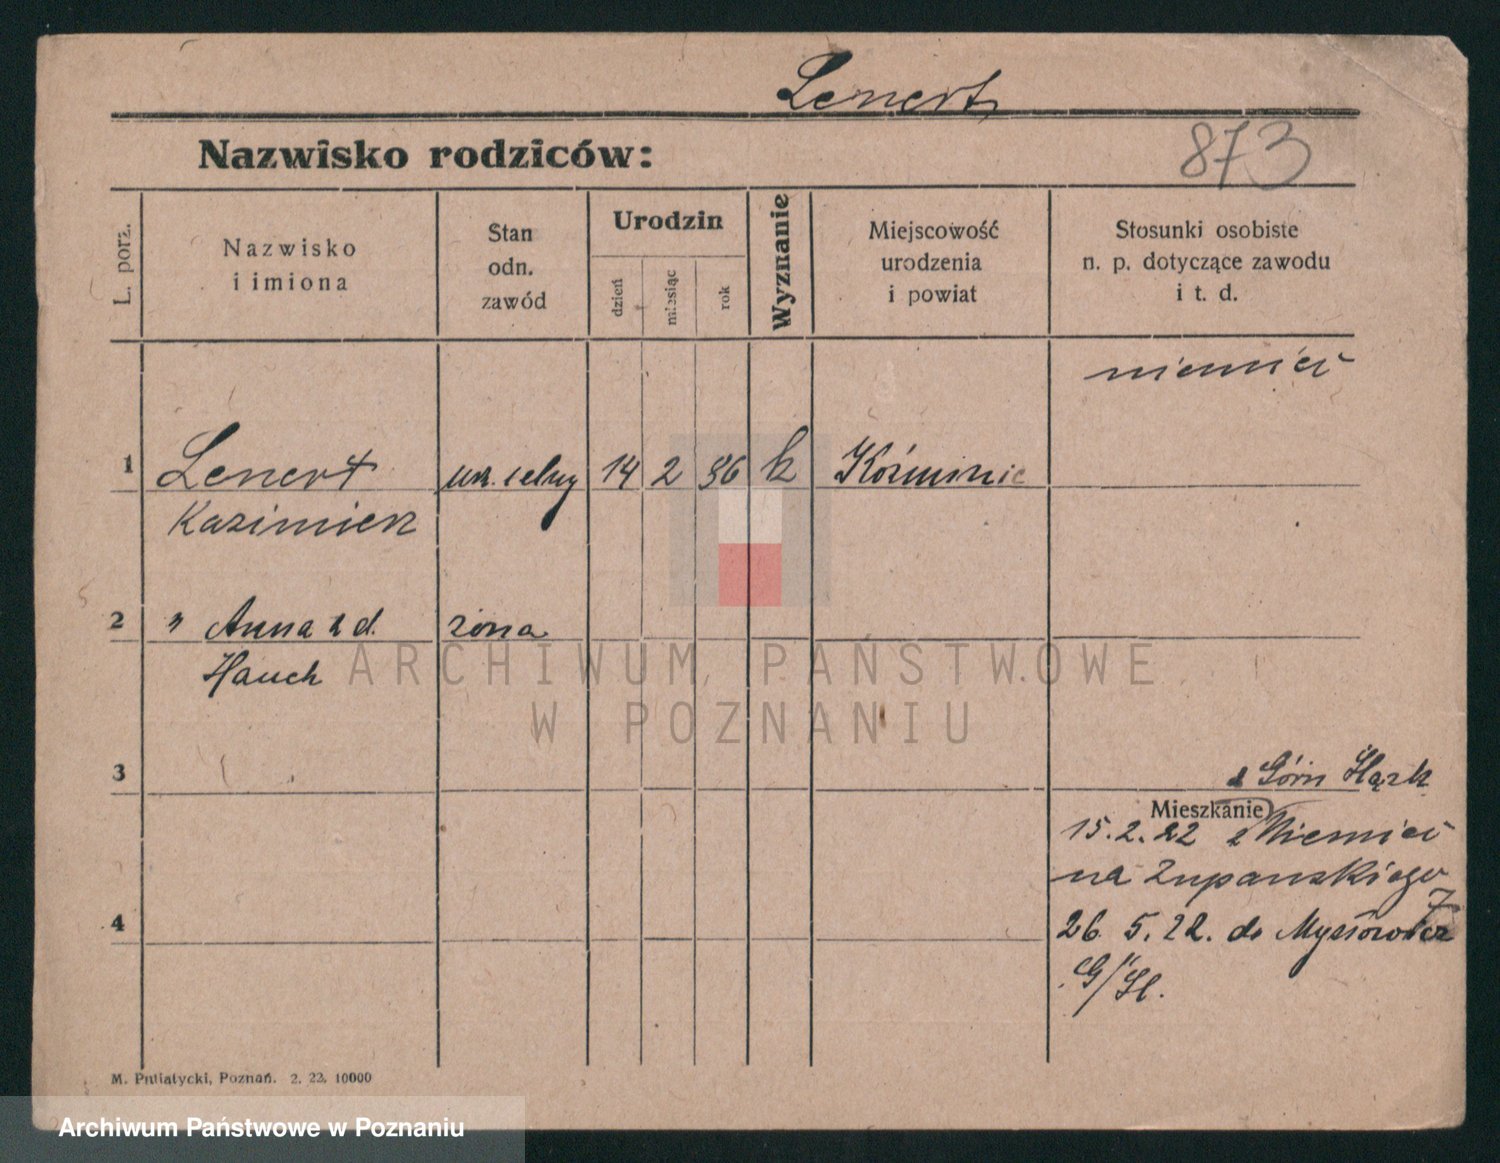 Lenert
Nazwisko rodziców:
873
L. porz.
Nazwisko
i imiona
Stan
odn.
zawód
Urodzin
dzień
miesiąc
rok
Wyznanie
Miejscowość
urodzenia
i powiat
Stosunki osobiste
n. p. dotyczące zawodu
i t. d.
1 Lenert 14 2 96 k
Kazimierz
2 " Anna z d. żona
Hauch
3
Górn Śląsk
Mieszkanie
15.2.22 z Niemiec
na Żupańskiego 7
4
26. 5. 22. do Mysłowic
G/Śl.
M. Putiatycki, Poznań. 2. 22, 10000
ARCHIWUM PAŃSTWOWE
W POZNANIU
Archiwum Państwowe w Poznaniu